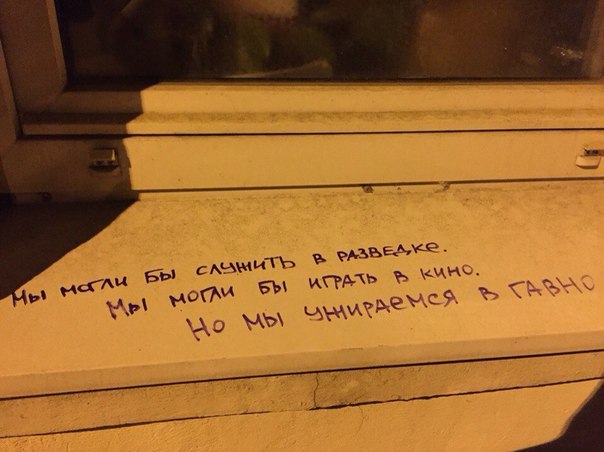 Мы могли бы служить в разведке.
Мы могли бы играть в кино.
Но мы ужираемся в гавно